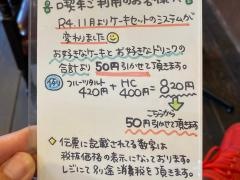 喫茶ご利用のお客様へ
R4.11月よりケーキセットのシステムが
変わりました
お好きなケーキとお好きなドリンクの
合計より50円引かせて頂きます。
例 フルーツタルト 420円 + HC 400円 = 820円
こちらから
50円引かせて頂きます
伝票に記載される数字は
税抜価格の表示になっております。
レジにて別途消費税を頂きます。